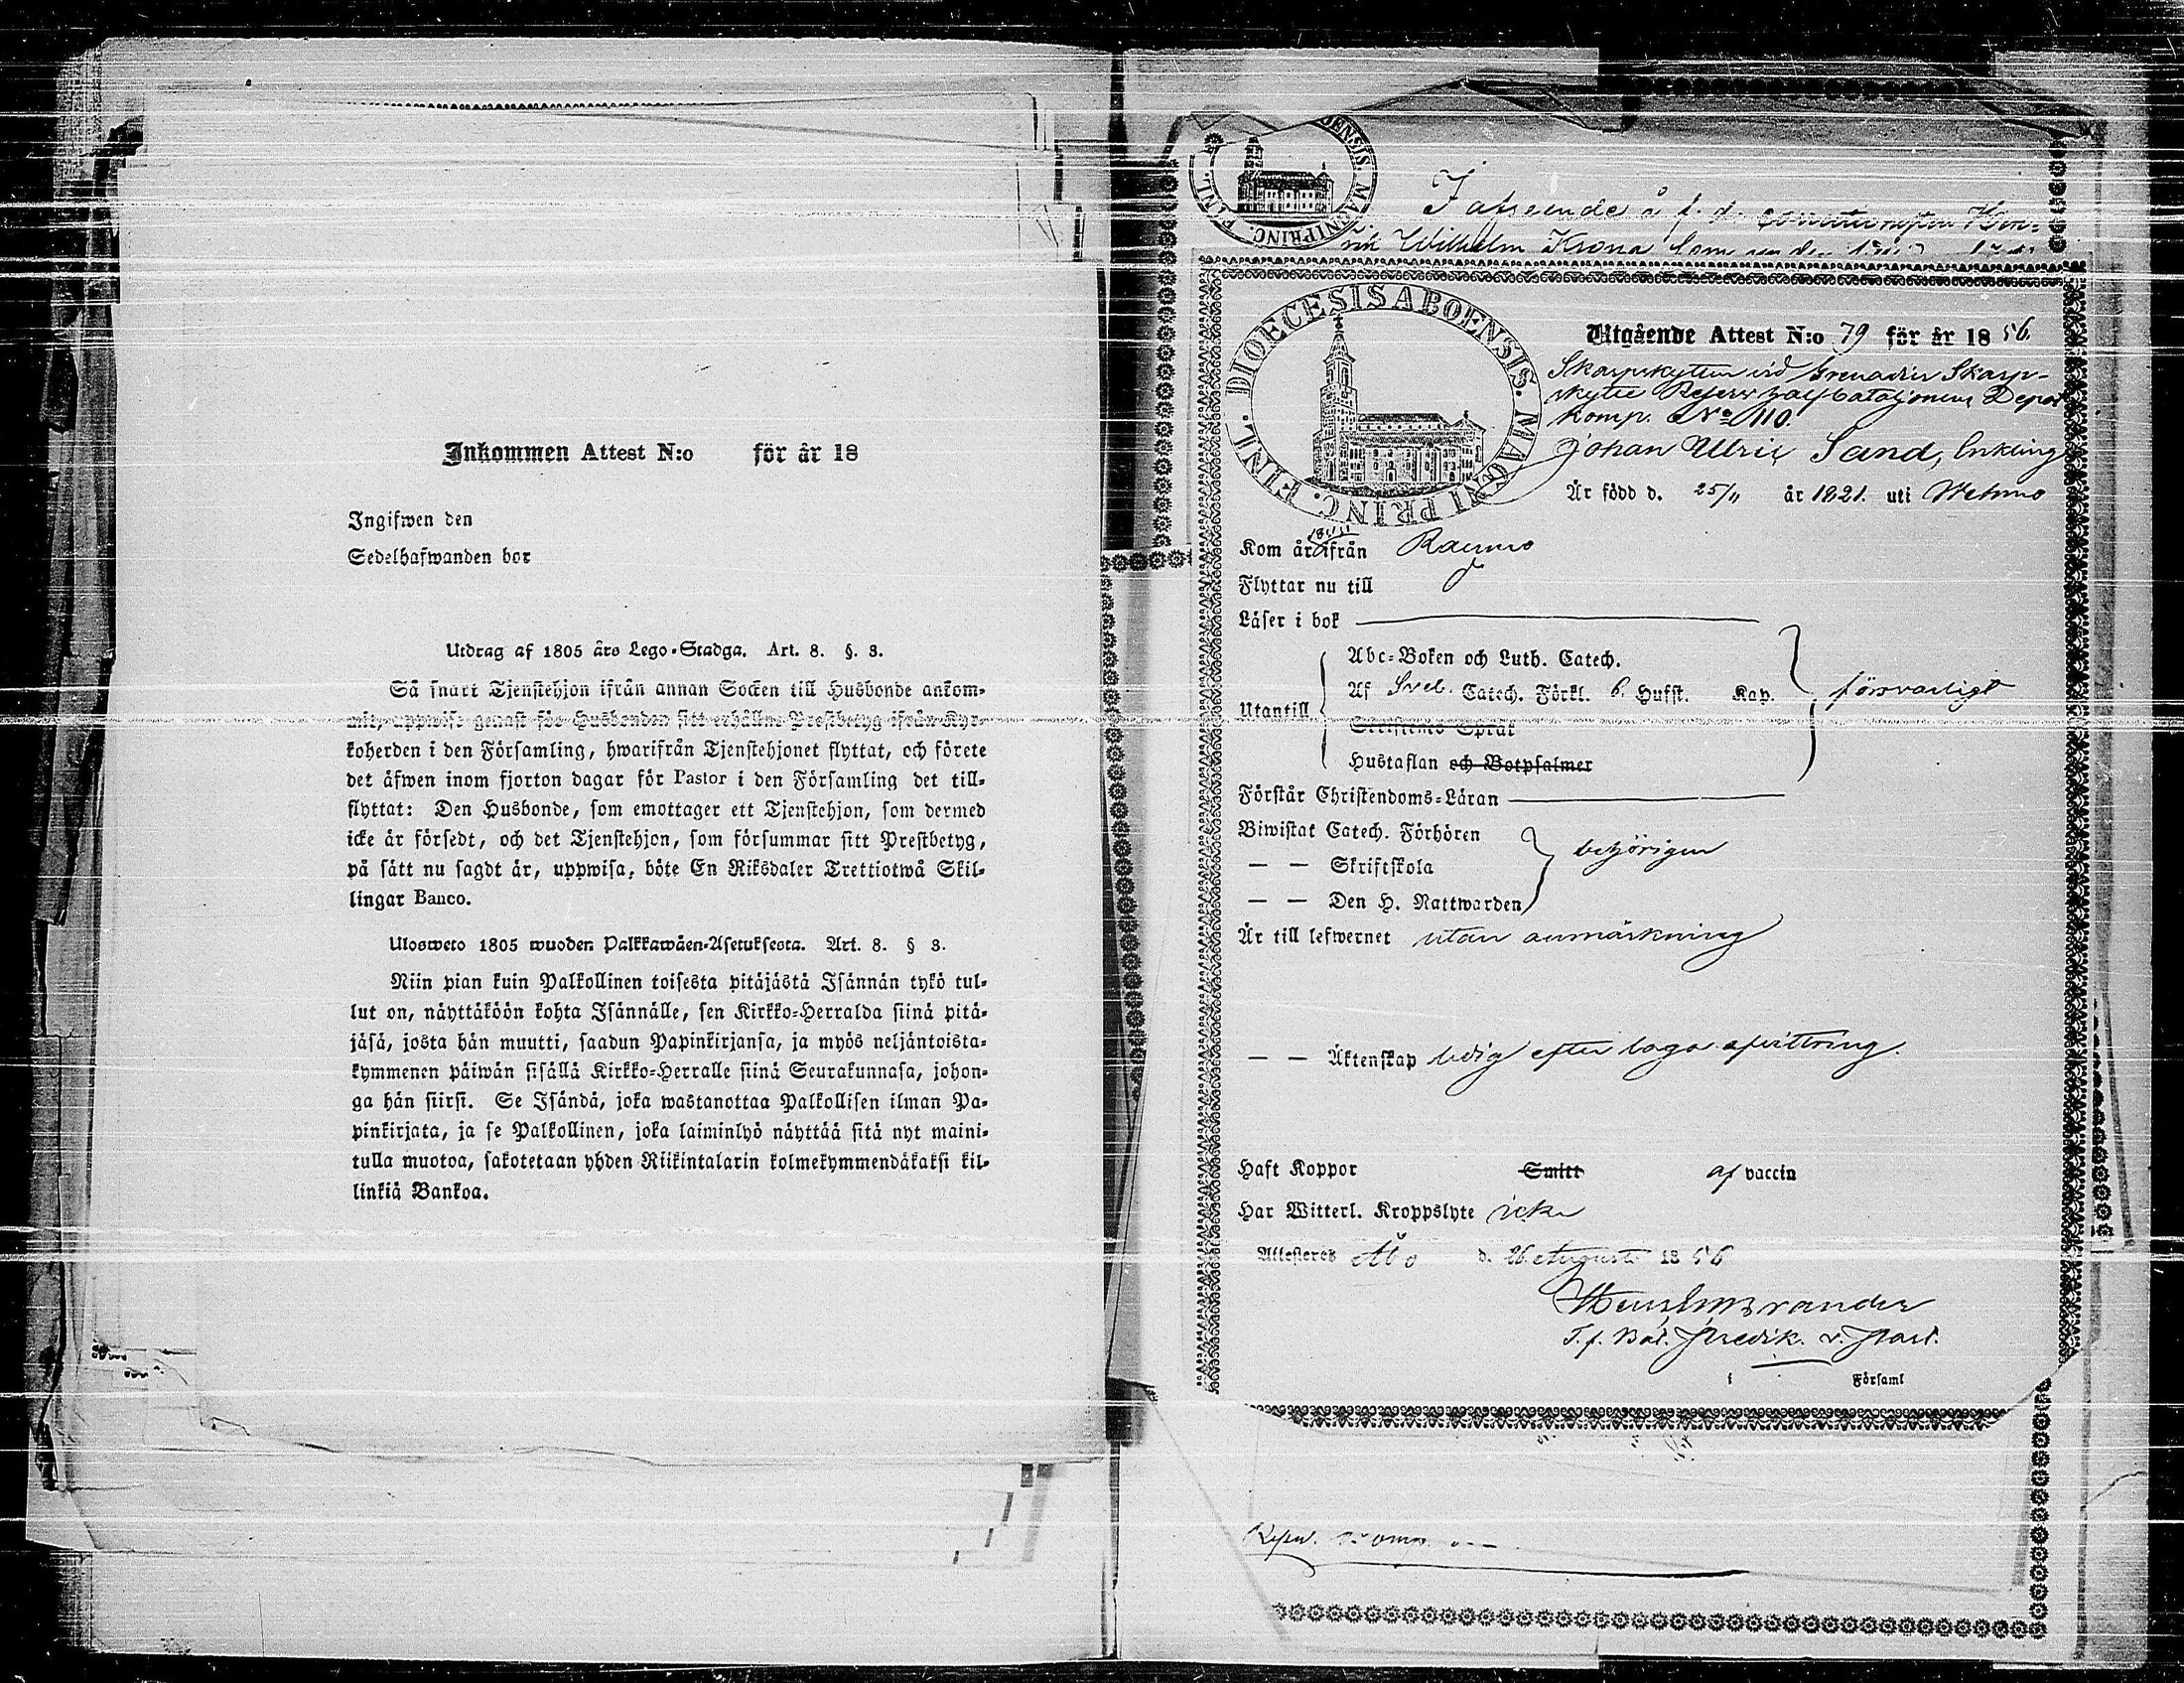 Inkommen Attest N:o för år 18
Ingifwen den
Sedelhafwanden bor
Utdrag af 1805 års Lego-Stadga. Art. 8. §. 3.
Så snart Tjenstehjon ifrån annan Socken till Husbonde ankom-
mit, uppwise genast för Husbonden sitt erhållne Prestbetyg ifrån Kyr-
koherden i den Församling, hwarifrån Tjenstehjonet flyttat, och förete
det äfwen inom fjorton dagar för Pastor i den Församling det till-
flyttat: Den Husbonde, som emottager ett Tjenstehjon, som dermed
icke är försedt, och det Tjenstehjon, som försummar sitt Prestbetyg,
på sätt nu sagdt är, uppwisa, böte En Riksdaler Trettiotwå Skil-
lingar Banco.
Ulosweto 1805 wuoden Palkkawäen-Asetuksesta. Art. 8. § 3.
Niin pian kuin Palkollinen toisesta pitäjästä Isännän tykö tul-
lut on, näyttäköön kohta Isännälle, sen Kirkko-Herralda siinä pitä-
jäsä, josta hän muutti, saadun Papinkirjansa, ja myös neljäntoista-
kymmenen päiwän sisällä Kirkko-Herralle siinä Seurakunnasa, johon-
ga hän siirsi. Se Isändä, joka wastanottaa Palkollisen ilman Pa-
pinkirjata, ja se Palkollinen, joka laiminlyö näyttää sitä nyt maini-
tulla muotoa, sakotetaan yhden Riikintalarin kolmekymmendäkaksi kil-
linkiä Bankoa.
å f. d. Hen-
rik Wilhelm Krona som den
DIOECESIS ABOENSIS. MAGNI PRINC. FINL.
Utgående Attest N:o 79 för år 1856.
Skarpskytten vid Grenadier Skarp-
skytte Reserv halfbataljonens Depot
Komp. No 110.
Johan Ulric Sand, Enkling
Är född d. 25/11 år 1821. uti Wehmo
Kom år ifrån Raumo
Flyttar nu till
Läser i bok
Utantill
Abc-Boken och Luth. Catech.
Af Sveb. Catech. Förkl. 6. Hufst. Kap. försvarligt
Skriftenes Språk
Hustaflan och Botpsalmer
Förstår Christendoms-Läran
Biwistat Catech. Förhören
— — Skriftskola behörigen
— — Den H. Nattwarden
Är till lefwernet utan anmärkning
— — Äktenskap ledig efter laga afvittring.
Haft Koppor Smitt af vaccin
Har Witterl. Kroppslyte icke
Attesteras Åbo d. 26 Augusti 1856
T. f. Bat. Predik. v. Past.
i Församl